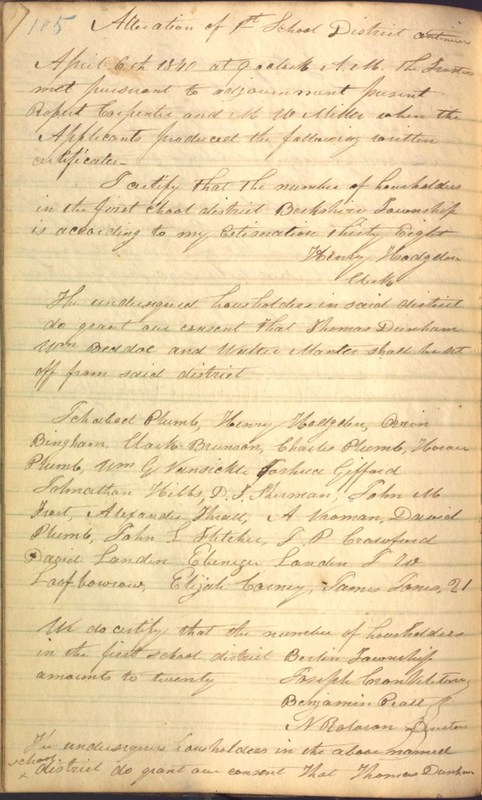 105
Alteration of 1st School District continued
April 6th 1840 at 9 oclock A.M. The Trustees
met pursuant to adjournment present
Robert Carpenter and M W Miller when the
Applicants produced the following written
certificates
I certify that the number of housholders
in the first school district Berkshire Township
is according to my Estimation thirty Eight
Henry Hodgden
Clerk
The undersigned housholders in said district
do grant our consent that Thomas Dunham
Wm Bosdoe and Walter Manter shall be set
off from said district
Ichabod Plumb, Henry Hodgden,
Bingham Clark Brunson, Charles Plumb, Horace
Plumb, Wm G Vansickle Joshua Gifford
Johnathan Hibbs, D. J. Sherman, John M
Frost, Alexander Thrall, A Vroman, David
Plumb, John L Fletcher, T P Crawford
David Landon Ebenezer Landon T W
Elijah Carney, James Jones, 21
We do certify that the number of housholders
in the first school district Berlin Township
amounts to twenty Joseph
Benjamin Peall
N Roloson
The undersigned housholders in the above named
school district do grant our consent That Thomas Dunham